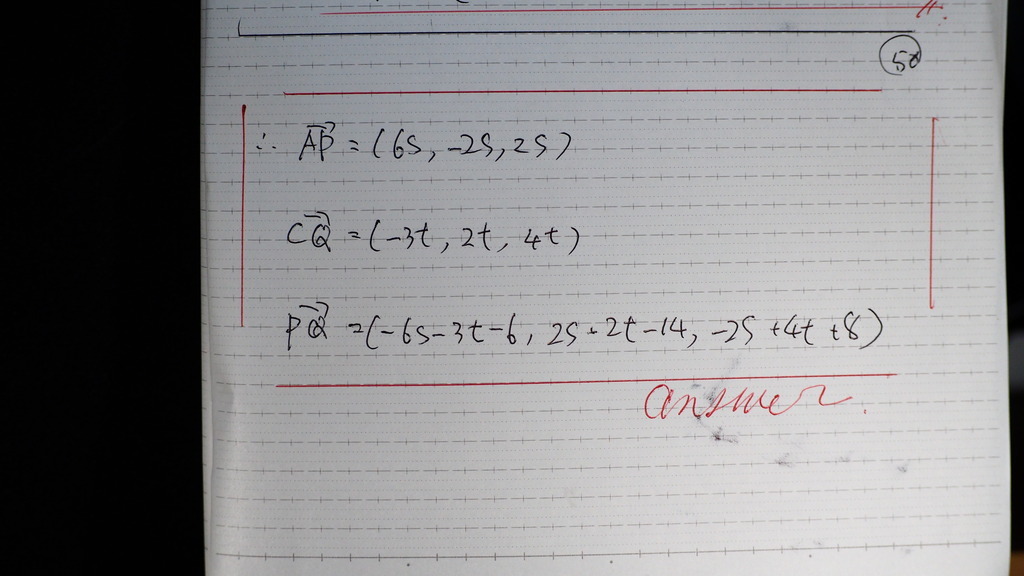 50
∴ AP = (6s, -2s, 2s)
CQ = (-3t, 2t, 4t)
PQ = (-6s-3t-6, 2s+2t-14, -2s+4t+8)
answer.